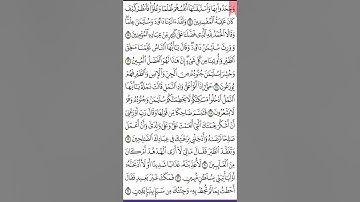 وَجَحَدُوا۟ بِهَا وَٱسْتَيْقَنَتْهَآ أَنفُسُهُمْ ظُلْمًا وَعُلُوًّا فَٱنظُرْ كَيْفَ
كَانَ عَٰقِبَةُ ٱلْمُفْسِدِينَ ١٤ وَلَقَدْ ءَاتَيْنَا دَاوُۥدَ وَسُلَيْمَٰنَ عِلْمًا
وَقَالَا ٱلْحَمْدُ لِلَّهِ ٱلَّذِى فَضَّلَنَا عَلَىٰ كَثِيرٍ مِّنْ عِبَادِهِ ٱلْمُؤْمِنِينَ ١٥
وَوَرِثَ سُلَيْمَٰنُ دَاوُۥدَ وَقَالَ يَٰٓأَيُّهَا ٱلنَّاسُ عُلِّمْنَا مَنطِقَ
ٱلطَّيْرِ وَأُوتِينَا مِن كُلِّ شَىْءٍ إِنَّ هَٰذَا لَهُوَ ٱلْفَضْلُ ٱلْمُبِينُ ١٦
وَحُشِرَ لِسُلَيْمَٰنَ جُنُودُهُۥ مِنَ ٱلْجِنِّ وَٱلْإِنسِ وَٱلطَّيْرِ فَهُمْ
يُوزَعُونَ ١٧ حَتَّىٰٓ إِذَآ أَتَوْا۟ عَلَىٰ وَادِ ٱلنَّمْلِ قَالَتْ نَمْلَةٌ يَٰٓأَيُّهَا
ٱلنَّمْلُ ٱدْخُلُوا۟ مَسَٰكِنَكُمْ لَا يَحْطِمَنَّكُمْ سُلَيْمَٰنُ وَجُنُودُهُۥ وَهُمْ
لَا يَشْعُرُونَ ١٨ فَتَبَسَّمَ ضَاحِكًا مِّن قَوْلِهَا وَقَالَ رَبِّ أَوْزِعْنِىٓ
أَنْ أَشْكُرَ نِعْمَتَكَ ٱلَّتِىٓ أَنْعَمْتَ عَلَىَّ وَعَلَىٰ وَٰلِدَىَّ وَأَنْ أَعْمَلَ
صَٰلِحًا تَرْضَىٰهُ وَأَدْخِلْنِى بِرَحْمَتِكَ فِى عِبَادِكَ ٱلصَّٰلِحِينَ ١٩
وَتَفَقَّدَ ٱلطَّيْرَ فَقَالَ مَا لِىَ لَآ أَرَى ٱلْهُدْهُدَ أَمْ كَانَ
مِنَ ٱلْغَآئِبِينَ ٢٠ لَأُعَذِّبَنَّهُۥ عَذَابًا شَدِيدًا أَوْ لَأَا۟ذْبَحَنَّهُۥٓ
أَوْ لَيَأْتِيَنِّى بِسُلْطَٰنٍ مُّبِينٍ ٢١ فَمَكَثَ غَيْرَ بَعِيدٍ فَقَالَ
أَحَطتُ بِمَا لَمْ تُحِطْ بِهِۦ وَجِئْتُكَ مِن سَبَإٍۭ بِنَبَإٍ يَقِينٍ ٢٢